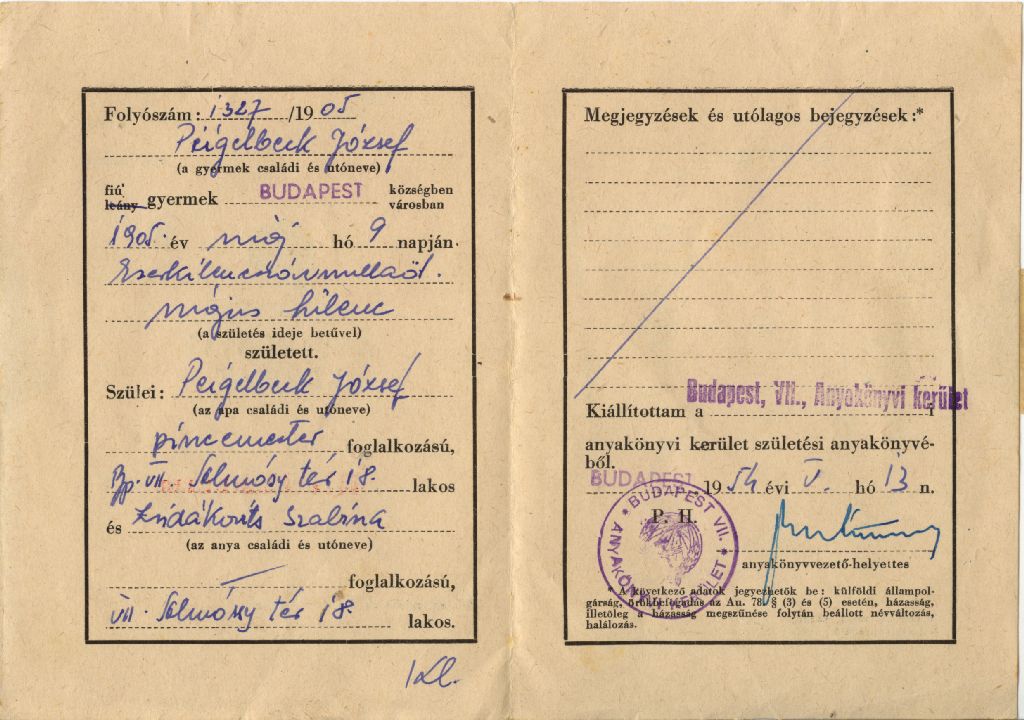 Folyószám: 1327 /1905
Peigelbeck József
(a gyermek családi és utóneve)
fiú
leány gyermek BUDAPEST községben
városban
1905. év máj hó 9 napján
Ezerkilencszáznulla öt.
május kilenc
(a születés ideje betűvel)
született.
Szülei: Peigelbeck József
(az apa családi és utóneve)
pincemester foglalkozású,
Bp. VII. Almásy tér 18. lakos
és Szabina
(az anya családi és utóneve)
— foglalkozású,
VII. Almásy tér 18. lakos.
Megjegyzések és utólagos bejegyzések:*
Budapest, VII., Anyakönyvi kerület
Kiállítottam a i
anyakönyvi kerület születési anyakönyvé-
ből.
BUDAPEST 1954 évi V. hó 13 n.
P. H.
* BUDAPEST VII. * ANYAKÖNYVI KERÜLET
anyakönyvvezető-helyettes
* A következő adatok jegyezhetők be: külföldi állampol-
gárság, örökbefogadás az Au. 78. § (3) és (5) esetén, házasság,
illetőleg a házasság megszűnése folytán beállott névváltozás,
halálozás.